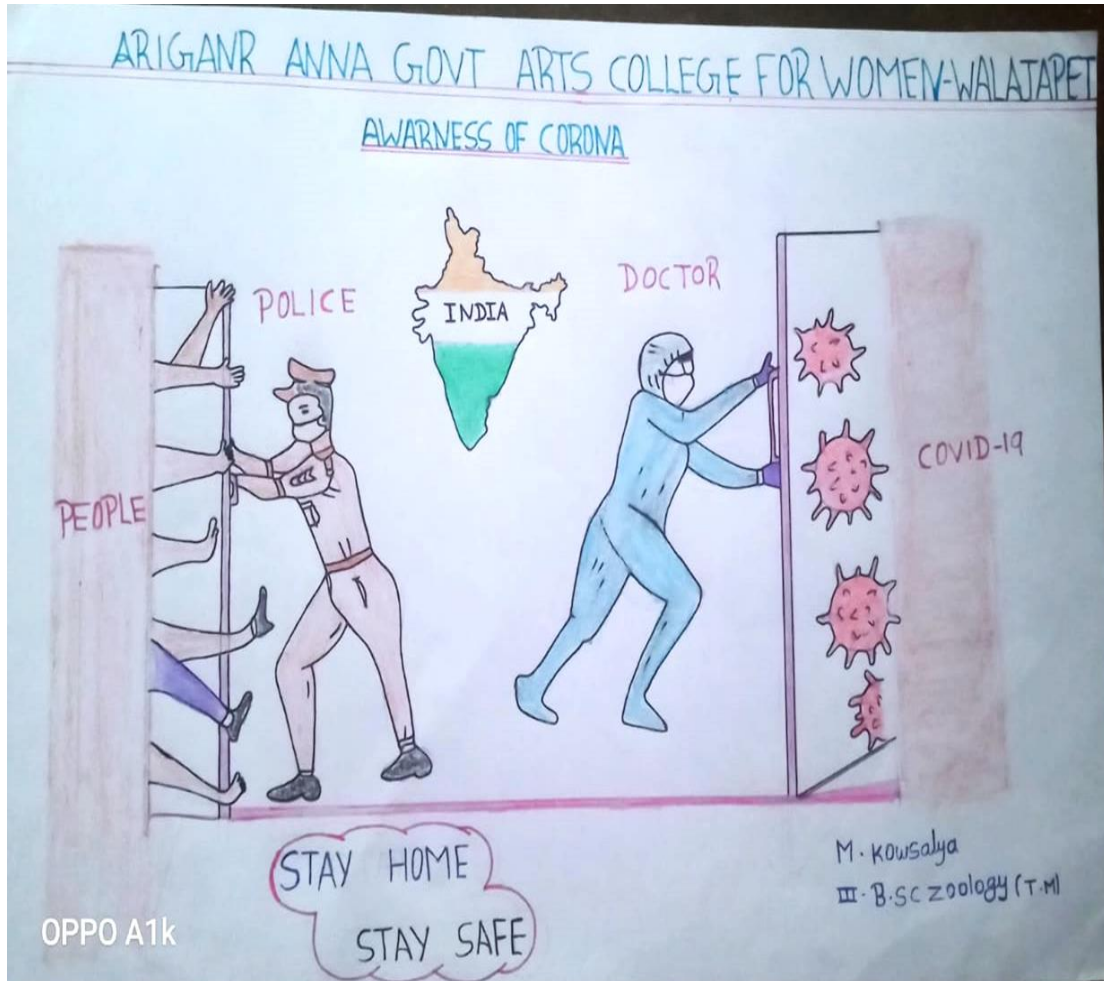 ARIGANR ANNA GOVT ARTS COLLEGE FOR WOMEN-WALAJAPET
AWARNESS OF CORONA
POLICE
INDIA
DOCTOR
PEOPLE
COVID-19
STAY HOME
STAY SAFE
M. Kowsalya
III. B.SC zoology (T.M)
OPPO A1k